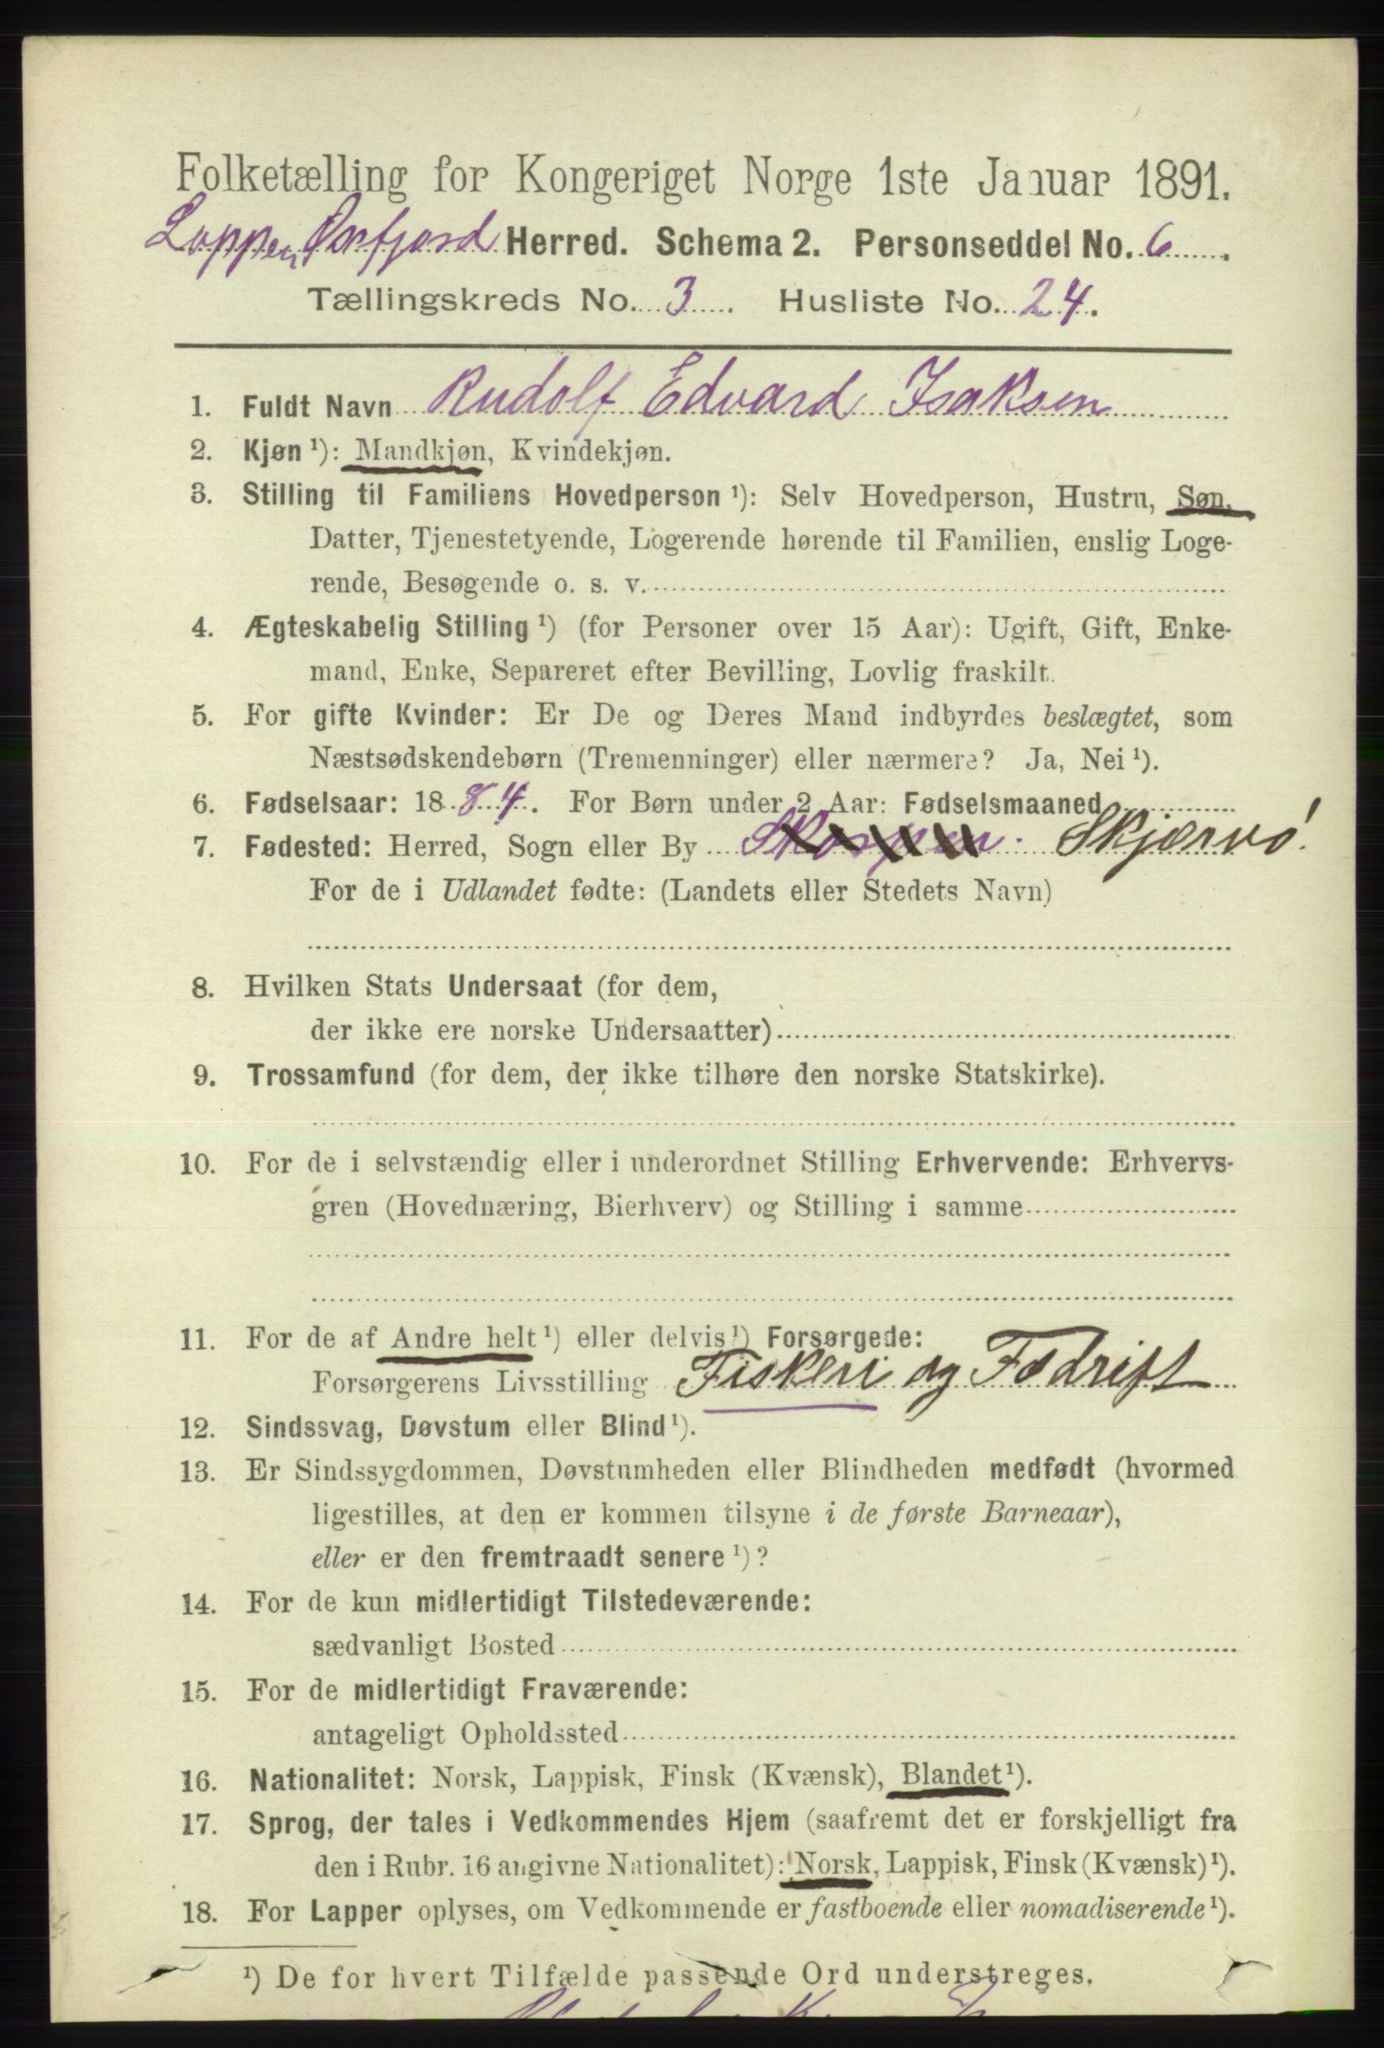 Folketælling for Kongeriget Norge 1ste Januar 1891.
Loppen, Øxfjord Herred. Schema 2. Personseddel No. 6.
Tællingskreds No. 3. Husliste No. 24.
1. Fuldt Navn Rudolf Edvard Isaksen
2. Kjøn ¹): Mandkjøn, Kvindekjøn.
3. Stilling til Familiens Hovedperson ¹): Selv Hovedperson, Hustru, Søn,
Datter, Tjenestetyende, Logerende hørende til Familien, enslig Loge-
rende, Besøgende o. s. v.
4. Ægteskabelig Stilling ¹) (for Personer over 15 Aar): Ugift, Gift, Enke-
mand, Enke, Separeret efter Bevilling, Lovlig fraskilt.
5. For gifte Kvinder: Er De og Deres Mand indbyrdes beslægtet, som
Næstsødskendebørn (Tremenninger) eller nærmere? Ja, Nei ¹).
6. Fødselsaar: 1884. For Børn under 2 Aar: Fødselsmaaned
7. Fødested: Herred, Sogn eller By Skjærvö.
For de i Udlandet fødte: (Landets eller Stedets Navn)
8. Hvilken Stats Undersaat (for dem,
der ikke ere norske Undersaatter)
9. Trossamfund (for dem, der ikke tilhøre den norske Statskirke).
10. For de i selvstændig eller i underordnet Stilling Erhvervende: Erhvervs-
gren (Hovednæring, Bierhverv) og Stilling i samme
11. For de af Andre helt ¹) eller delvis ¹) Forsørgede:
Forsørgerens Livsstilling Fiskeri og Fædrift
12. Sindssvag, Døvstum eller Blind ¹).
13. Er Sindssygdommen, Døvstumheden eller Blindheden medfødt (hvormed
ligestilles, at den er kommen tilsyne i de første Barneaar),
eller er den fremtraadt senere ¹)?
14. For de kun midlertidigt Tilstedeværende:
sædvanligt Bosted
15. For de midlertidigt Fraværende:
antageligt Opholdssted
16. Nationalitet: Norsk, Lappisk, Finsk (Kvænsk), Blandet ¹).
17. Sprog, der tales i Vedkommendes Hjem (saafremt det er forskjelligt fra
den i Rubr. 16 angivne Nationalitet): Norsk, Lappisk, Finsk (Kvænsk) ¹).
18. For Lapper oplyses, om Vedkommende er fastboende eller nomadiserende ¹).
¹) De for hvert Tilfælde passende Ord understreges.